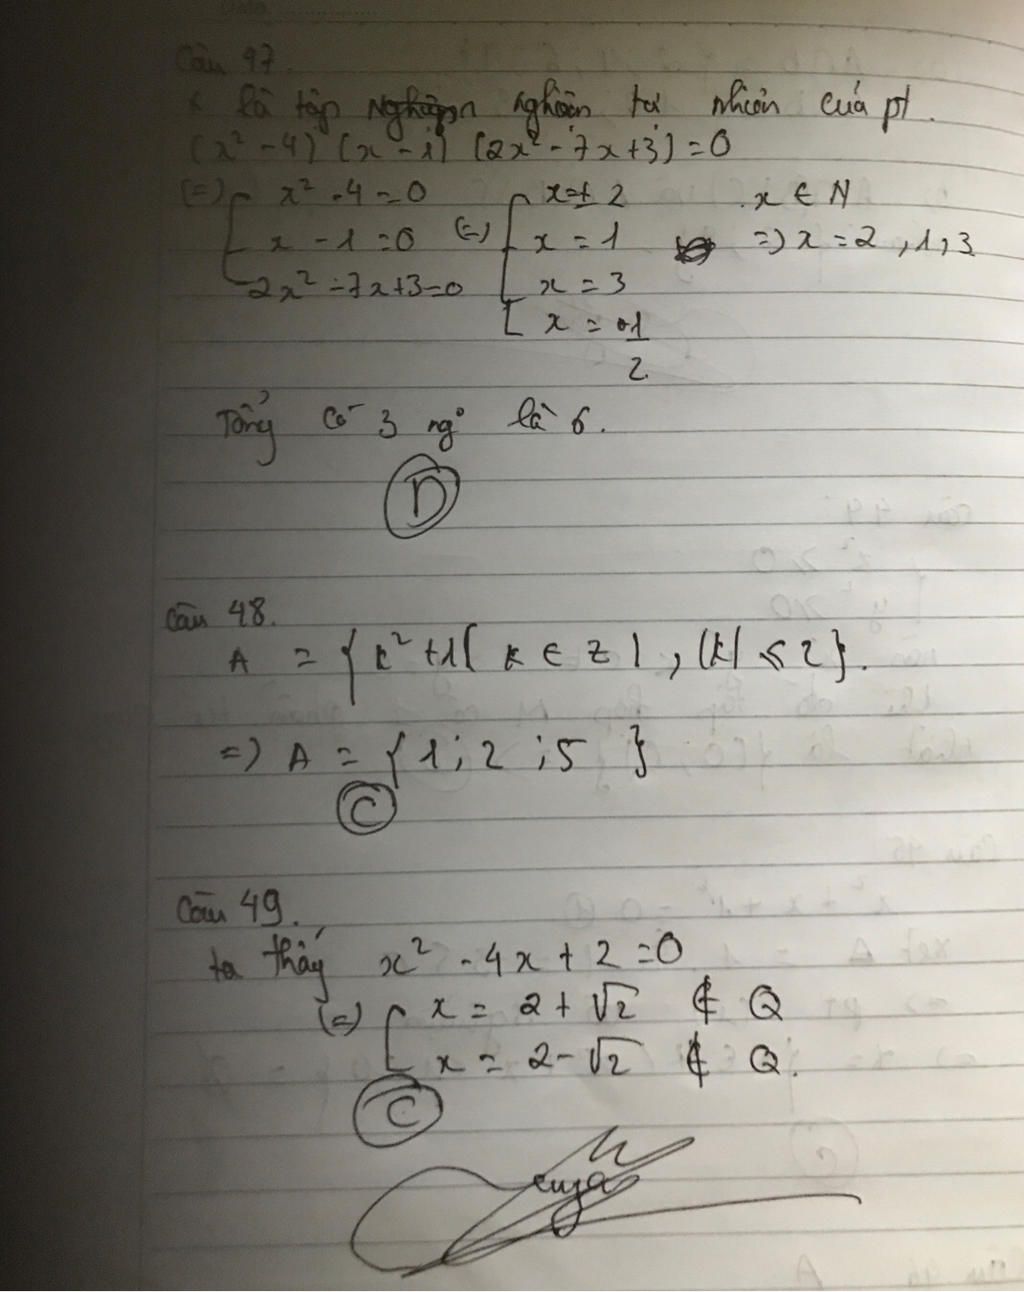 Câu 47.
x là tập nghiệm tự nhiên của pt.
(x² - 4) (x - 1) (2x² - 7x + 3) = 0
(=) x² - 4 = 0 x = ± 2 . x ∈ N
x - 1 = 0 (=) x = 1 => x = 2 , 1, 3
2x² - 7x + 3 = 0 x = 3
x = 1/2
Tổng có 3 ng⁰ là 6.
D
Câu 48.
A = { k² + 1 | k ∈ Z | , |k| ≤ 2 }.
=> A = { 1 ; 2 ; 5 }
C
Câu 49.
ta thấy x² - 4x + 2 = 0
(=) x = 2 + √2 ∉ Q
x = 2 - √2 ∉ Q.
C